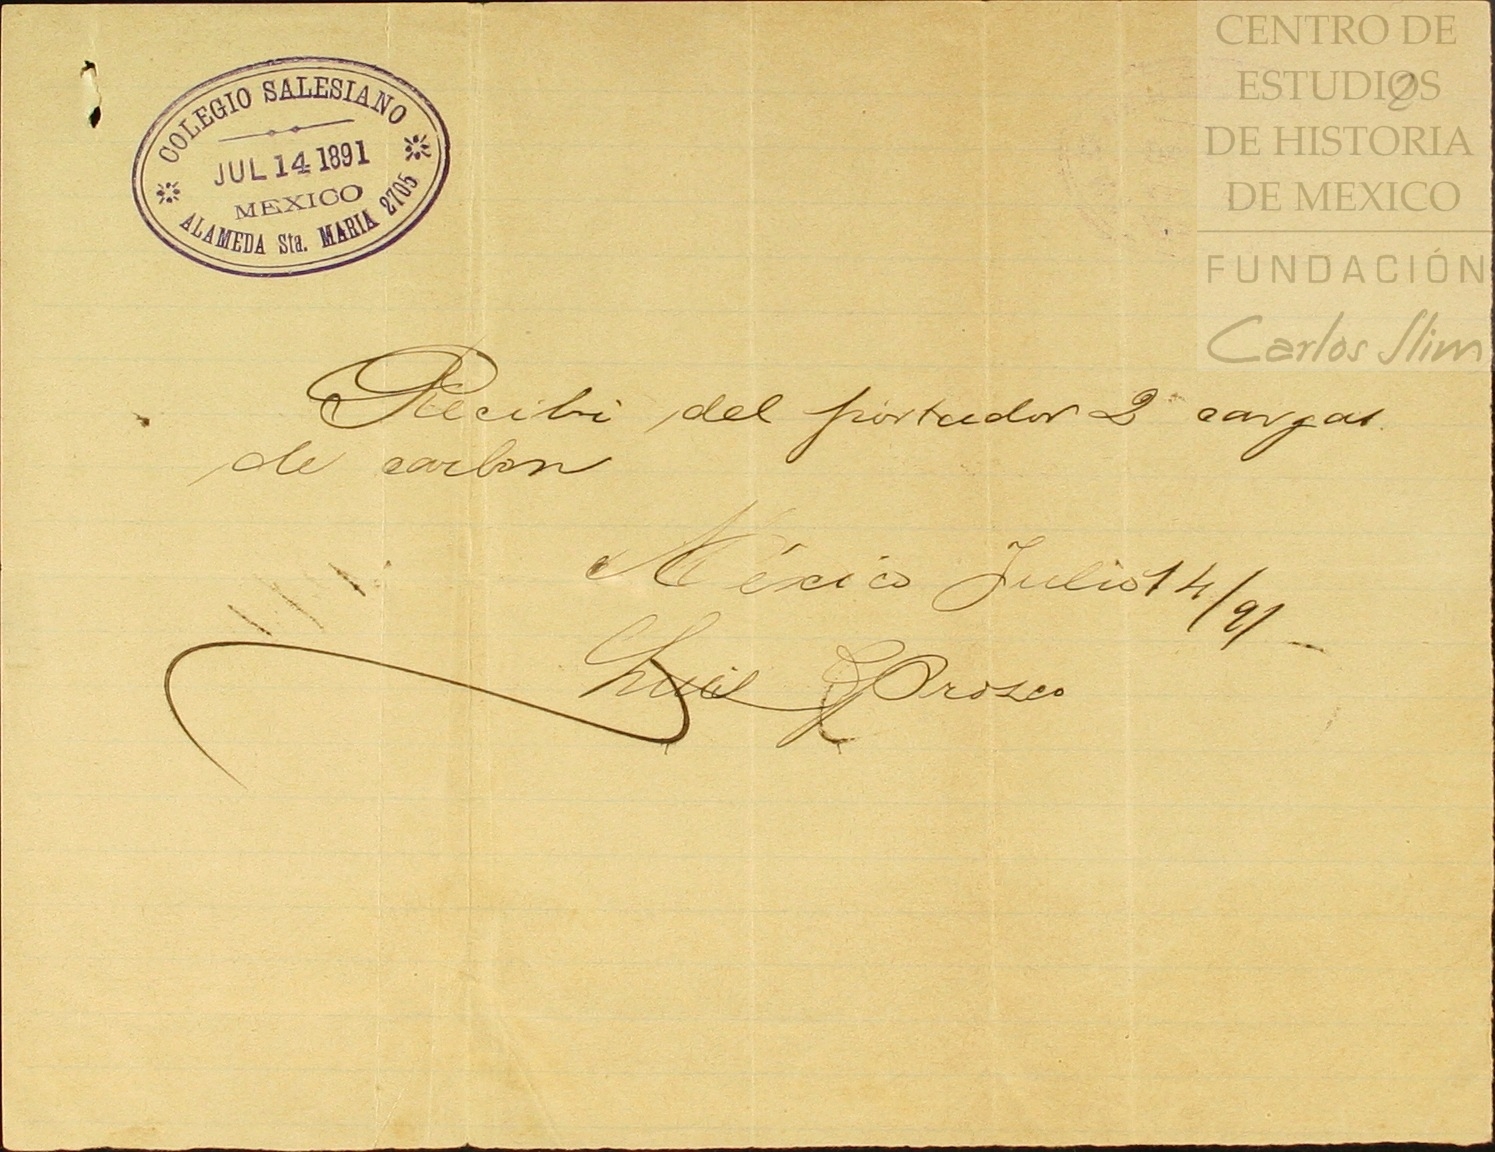 COLEGIO SALESIANO
JUL 14 1891
MEXICO
ALAMEDA Sta. MARIA 2705
CENTRO DE
ESTUDIOS
DE HISTORIA
DE MEXICO
FUNDACIÓN
Carlos Slim
2
Recibi del portador 2 cargas
de carbon
México Julio 14/91
Luis G Orozco